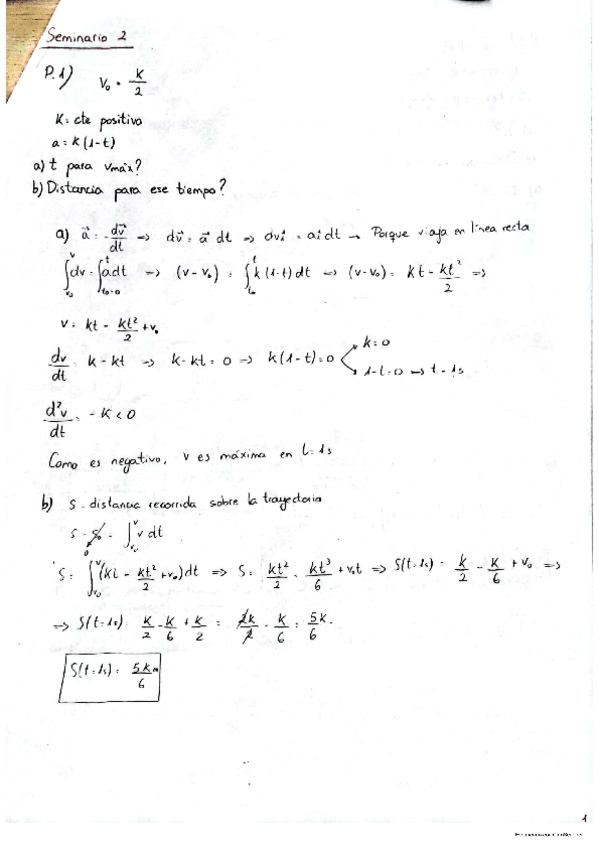 Seminario 2
P.1) V₀ = K/2
K = cte positivo
a = k(1-t)
a) t para vmáx?
b) Distancia para ese tiempo?
a) a⃗ = dv⃗/dt => dv⃗ = a⃗ dt => dvî = aî dt → Porque viaja en línea recta
∫_{v₀}^{v} dv = ∫_{t₀=0}^{t} a dt => (v - v₀) = ∫_{t₀}^{t} k(1-t) dt => (v - v₀) = kt - kt²/2 =>
v = kt - kt²/2 + v₀
dv/dt = k - kt => k - kt = 0 => k(1-t) = 0 k = 0
1 - t = 0 => t = 1s
d²v/dt = -K < 0
Como es negativo, v es máxima en t = 1s
b) S = distancia recorrida sobre la trayectoria
S - S₀ = ∫_{v₀}^{v} v dt
0
S = ∫_{v₀}^{v} (kt - kt²/2 + v₀) dt => S = kt²/2 - kt³/6 + v₀t => S(t=1s) = k/2 - k/6 + v₀ =>
=> S(t=1s) = K/2 - K/6 + K/2 = 2k/2 - k/6 = 5k/6
S(t=1s) = 5k/6 m
1